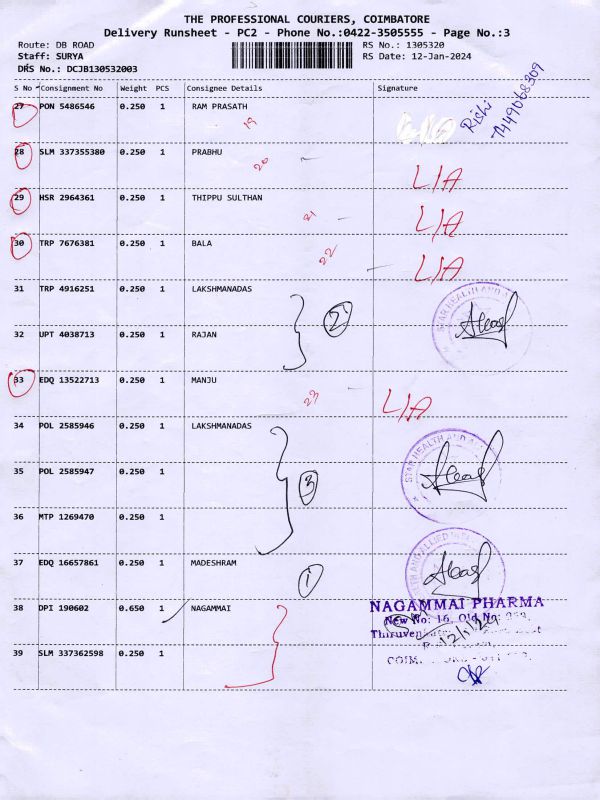 THE PROFESSIONAL COURIERS, COIMBATORE
Delivery Runsheet - PC2 - Phone No.:0422-3505555 - Page No.:3
Route: DB ROAD RS No.: 1305320
Staff: SURYA RS Date: 12-Jan-2024
DRS No.: DCJB130532003
S No Consignment No Weight PCS Consignee Details Signature
27 PON 5486546 0.250 1 RAM PRASATH 19 Rishi 7449068309
28 SLM 337355380 0.250 1 PRABHU 20 L/A
29 HSR 2964361 0.250 1 THIPPU SULTHAN 21 L/A
30 TRP 7676381 0.250 1 BALA 22 L/A
31 TRP 4916251 0.250 1 LAKSHMANADAS 2 STAR HEALTH AND
32 UPT 4038713 0.250 1 RAJAN
33 EDQ 13522713 0.250 1 MANJU 23 L/A
34 POL 2585946 0.250 1 LAKSHMANADAS STAR HEALTH AND
35 POL 2585947 0.250 1 3
36 MTP 1269470 0.250 1
37 EDQ 16657861 0.250 1 MADESHRAM 1 HEALTH AND ALLIED
38 DPI 190602 0.650 1 NAGAMMAI NAGAMMAI PHARMA
New No: 16, Old No:
12/1/24
39 SLM 337362598 0.250 1